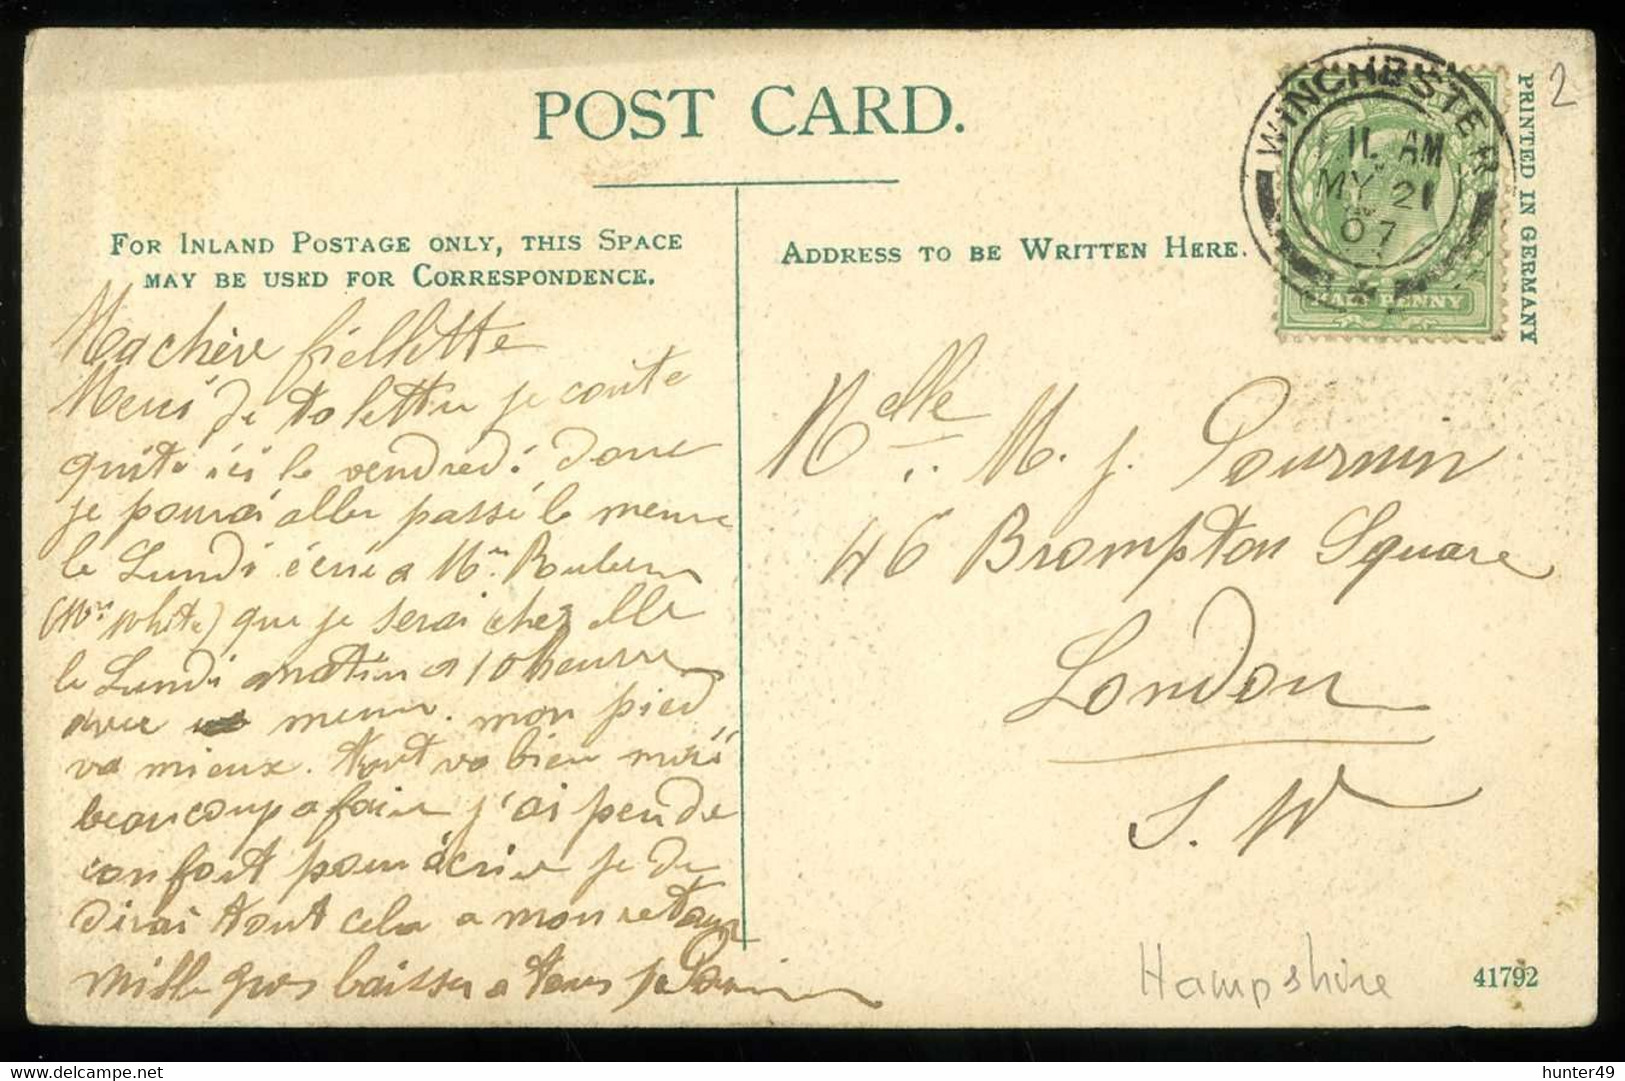 POST CARD.
FOR INLAND POSTAGE ONLY, THIS SPACE
MAY BE USED FOR CORRESPONDENCE.
ADDRESS TO BE WRITTEN HERE.
WINCHESTER
11 AM
MY 21
07
HALF PENNY
PRINTED IN GERMANY
2
Ma chère fiellette
Merci de ta lettre je
quite ici le vendredi donc
je pourai aller passé le
le Lundi écrie a Mm
(Mm White) que je serai chez elle
le Lundi matin a 10 heure
avec mon pied
va mieux. tout va bien
beaucoup a faire j'ai peu de
confort pour écrire je te
dirai tout cela a mon retour
mille gros baisser a tous
Melle M. J.
46 Brompton Square
London
S. W
Hampshire
41792
https://www.delcampe.net
hunter49